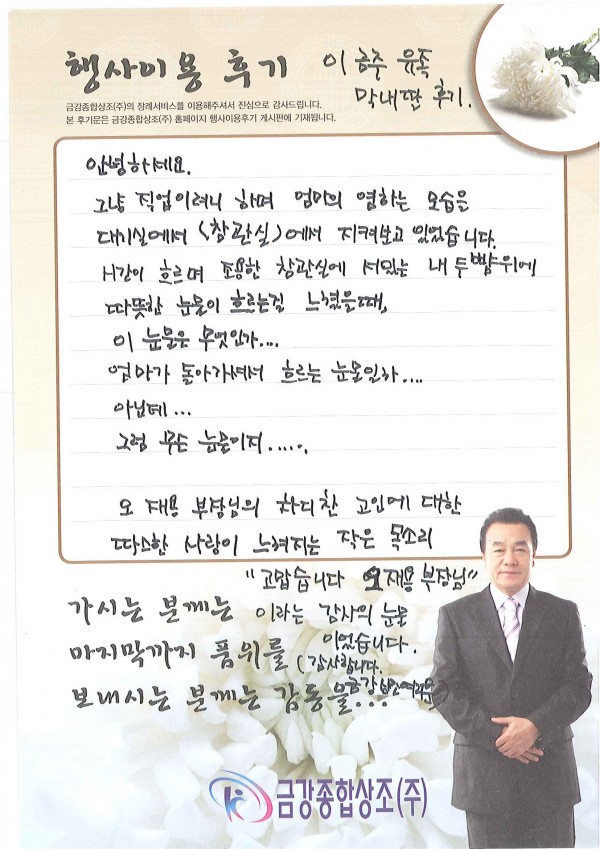 행사이용 후기
이 금주 유족
막내딸 후기.
금강종합상조(주)의 장례서비스를 이용해주셔서 진심으로 감사드립니다.
본 후기문은 금강종합상조(주) 홈페이지 행사이용후기 게시판에 기재됩니다.
안녕하세요.
그냥 직업이려니 하며 엄마의 염하는 모습을
대기실에서 <참관실>에서 지켜보고 있었습니다.
시간이 흐르며 조용한 참관실에 서있는 내 두뺨위에
따뜻한 눈물이 흐르는걸 느꼈을때,
이 눈물은 무엇인가....
엄마가 돌아가셔서 흐르는 눈물일까....
아닌데...
그럼 무슨 눈물이지.....
오 재용 부장님의 차디찬 고인에 대한
따스한 사랑이 느껴지는 작은 목소리
"고맙습니다 오재용 부장님"
이라는 감사의 눈물
이었습니다.
(감사합니다.
금강
가시는 분께는
마지막까지 품위를
보내시는 분께는 감동을...
금강종합상조(주)